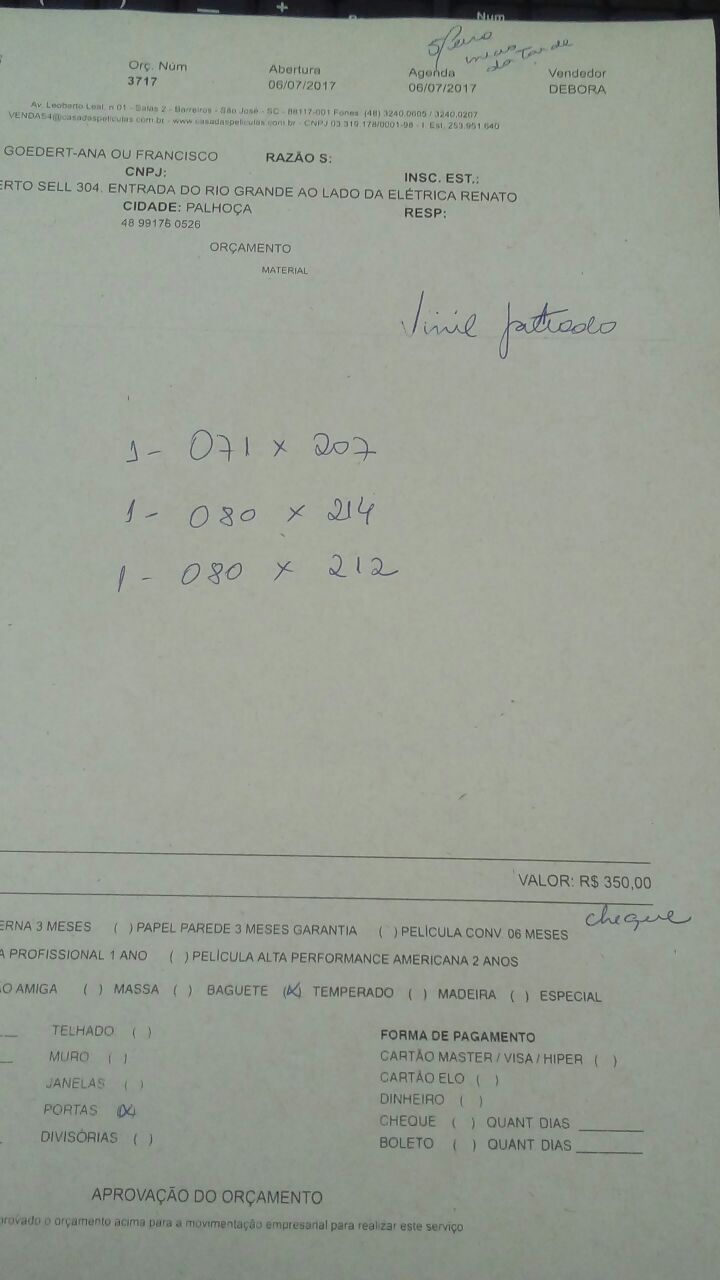 Num
meio
da Tarde
Orç. Núm Abertura Agenda Vendedor
3717 06/07/2017 06/07/2017 DEBORA
Av. Leoberto Leal, n.01 - Salas 2 - Barreiros - São José - SC - 88117-001 Fones: (48) 3240.0605 / 3240.0207
VENDAS4@casadaspeliculas.com.br - www.casadaspeliculas.com.br - CNPJ 03.319.178/0001-98 - I. Est. 253.951.640
GOEDERT-ANA OU FRANCISCO RAZÃO S:
CNPJ: INSC. EST.:
ERTO SELL 304. ENTRADA DO RIO GRANDE AO LADO DA ELÉTRICA RENATO
CIDADE: PALHOÇA RESP:
48 99176 0526
ORÇAMENTO
MATERIAL
Vinil jateado
1 - 071 x 207
1 - 080 x 214
1 - 080 x 212
VALOR: R$ 350,00
cheque
ERNA 3 MESES ( ) PAPEL PAREDE 3 MESES GARANTIA ( ) PELÍCULA CONV 06 MESES
A PROFISSIONAL 1 ANO ( ) PELÍCULA ALTA PERFORMANCE AMERICANA 2 ANOS
ÃO AMIGA ( ) MASSA ( ) BAGUETE (X) TEMPERADO ( ) MADEIRA ( ) ESPECIAL
TELHADO ( ) FORMA DE PAGAMENTO
MURO ( ) CARTÃO MASTER / VISA / HIPER ( )
JANELAS ( ) CARTÃO ELO ( )
PORTAS (X) DINHEIRO ( )
DIVISÓRIAS ( ) CHEQUE ( ) QUANT DIAS
BOLETO ( ) QUANT DIAS
APROVAÇÃO DO ORÇAMENTO
provado o orçamento acima para a movimentação empresarial para realizar este serviço